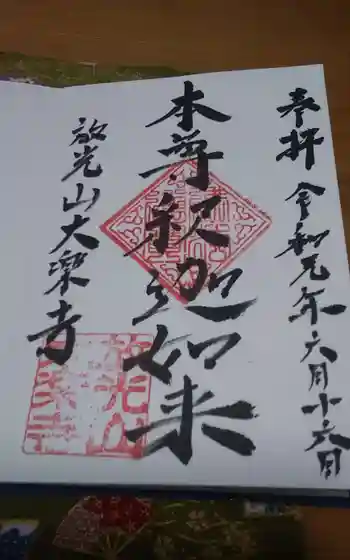 奉拝 令和元年六月十六日
本尊釈迦如来
放光山大乗寺